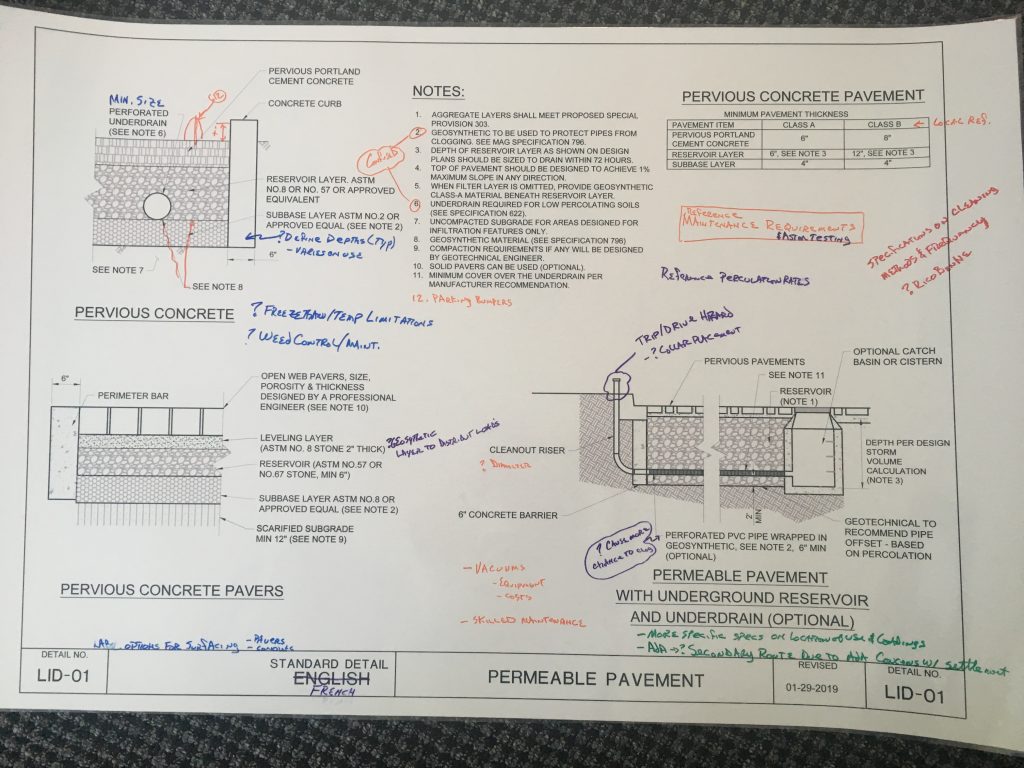 PERVIOUS PORTLAND
CEMENT CONCRETE
CONCRETE CURB
MIN. SIZE
PERFORATED
UNDERDRAIN
(SEE NOTE 6)
12
RESERVOIR LAYER. ASTM
NO.8 OR NO. 57 OR APPROVED
EQUIVALENT
SUBBASE LAYER ASTM NO.2 OR
APPROVED EQUAL (SEE NOTE 2)
? DEFINE DEPTHS (TYP)
- VARIES ON USE
6"
SEE NOTE 7
SEE NOTE 8
PERVIOUS CONCRETE
? FREEZE THAW/TEMP LIMITATIONS
? WEED CONTROL/MAINT.
NOTES:
1. AGGREGATE LAYERS SHALL MEET PROPOSED SPECIAL
PROVISION 303.
2. GEOSYNTHETIC TO BE USED TO PROTECT PIPES FROM
CLOGGING. SEE MAG SPECIFICATION 796.
3. DEPTH OF RESERVOIR LAYER AS SHOWN ON DESIGN
PLANS SHOULD BE SIZED TO DRAIN WITHIN 72 HOURS.
4. TOP OF PAVEMENT SHOULD BE DESIGNED TO ACHIEVE 1%
MAXIMUM SLOPE IN ANY DIRECTION.
5. WHEN FILTER LAYER IS OMITTED, PROVIDE GEOSYNTHETIC
CLASS-A MATERIAL BENEATH RESERVOIR LAYER.
6. UNDERDRAIN REQUIRED FOR LOW PERCOLATING SOILS
(SEE SPECIFICATION 622).
7. UNCOMPACTED SUBGRADE FOR AREAS DESIGNED FOR
INFILTRATION FEATURES ONLY.
8. GEOSYNTHETIC MATERIAL (SEE SPECIFICATION 796)
9. COMPACTION REQUIREMENTS IF ANY WILL BE DESIGNED
BY GEOTECHNICAL ENGINEER.
10. SOLID PAVERS CAN BE USED (OPTIONAL).
11. MINIMUM COVER OVER THE UNDERDRAIN PER
MANUFACTURER RECOMMENDATION.
12. PARKING BUMPERS
PERVIOUS CONCRETE PAVEMENT
MINIMUM PAVEMENT THICKNESS
PAVEMENT ITEM CLASS A CLASS B
LOCAL REF.
PERVIOUS PORTLAND
CEMENT CONCRETE 6" 8"
RESERVOIR LAYER 6", SEE NOTE 3 12", SEE NOTE 3
SUBBASE LAYER 4" 4"
REFERENCE
MAINTENANCE REQUIREMENTS
& ASTM TESTING
REFERENCE PERCULATION RATES
SPECIFICATIONS ON CLEANING
METHODS & FREQUENCY
6"
PERIMETER BAR
OPEN WEB PAVERS, SIZE,
POROSITY & THICKNESS
DESIGNED BY A PROFESSIONAL
ENGINEER (SEE NOTE 10)
LEVELING LAYER
(ASTM NO. 8 STONE 2" THICK)
? GEOSYNTHETIC
LAYER TO DISTRIBUT LOADS
RESERVOIR (ASTM NO.57 OR
NO.67 STONE, MIN 6")
SUBBASE LAYER ASTM NO.8 OR
APPROVED EQUAL (SEE NOTE 2)
SCARIFIED SUBGRADE
MIN 12" (SEE NOTE 9)
PERVIOUS CONCRETE PAVERS
TRIP/DRIVE HAZARD
- ? COLLAR PLACEMENT
PERVIOUS PAVEMENTS
SEE NOTE 11
RESERVOIR
(NOTE 1)
OPTIONAL CATCH
BASIN OR CISTERN
CLEANOUT RISER
? DIAMETER
DEPTH PER DESIGN
STORM
VOLUME
CALCULATION
(NOTE 3)
6" CONCRETE BARRIER
2'
MIN
GEOTECHNICAL TO
RECOMMEND PIPE
OFFSET - BASED
ON PERCOLATION
? CAUSE MORE
CHANCE TO CLOG
PERFORATED PVC PIPE WRAPPED IN
GEOSYNTHETIC, SEE NOTE 2, 6" MIN
(OPTIONAL)
- VACUUMS
- EQUIPMENT
- COSTS
- SKILLED MAINTENANCE
PERMEABLE PAVEMENT
WITH UNDERGROUND RESERVOIR
AND UNDERDRAIN (OPTIONAL)
- MORE SPECIFIC SPECS ON LOCATION OF USE & LOADINGS
- ADA → ? SECONDARY ROUTE DUE TO ADA CONCERNS W/ SETTLEMENT
OPTIONS FOR SURFACING - PAVERS
- CONCRETE
DETAIL NO.
LID-01
STANDARD DETAIL
ENGLISH
FRENCH
PERMEABLE PAVEMENT
REVISED
01-29-2019
DETAIL NO.
LID-01